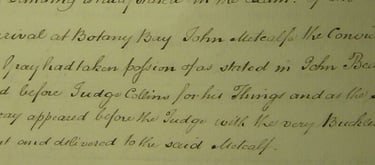 in the Claim.
rrival at Botany Bay John Metcalfe the Convic
Gray had taken possion of as stated in John Be
d before Judge Collins for his Things and as the
ray appeared before the Judge with the very Buckle
st and delivered to the said Metcalf.